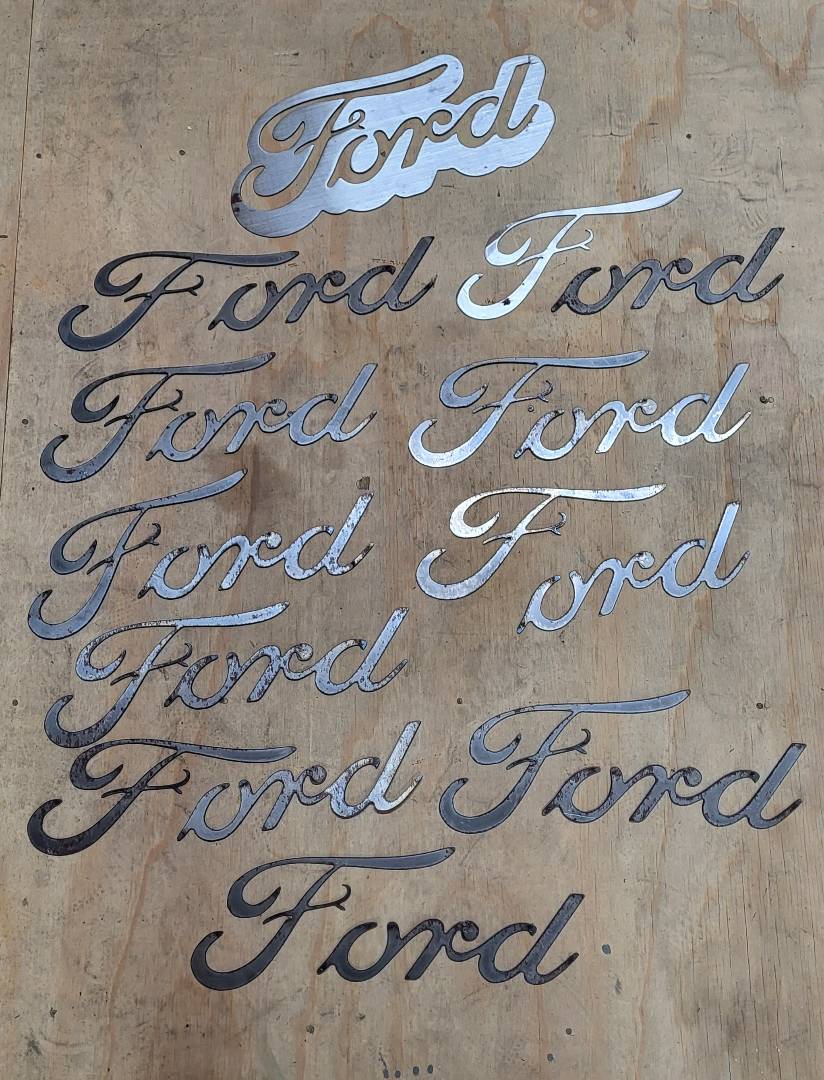 Ford
Ford Ford
Ford Ford
Ford Ford
Ford
Ford Ford
Ford